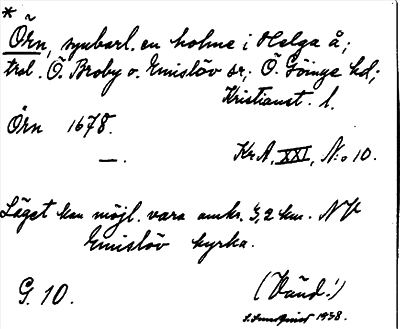 *
Örn, synbarl. en holme i Helga å;
trol. Ö. Broby o. Emislöv sr; Ö. Göinge hd;
Kristianst. l.
Örn 1678.
—. Kr.A, XXI, N:o 10.
Läget kan möjl. vara omkr. 3,2 km. NV
Emislöv kyrka.
G. 10. (Vänd!)
1938.